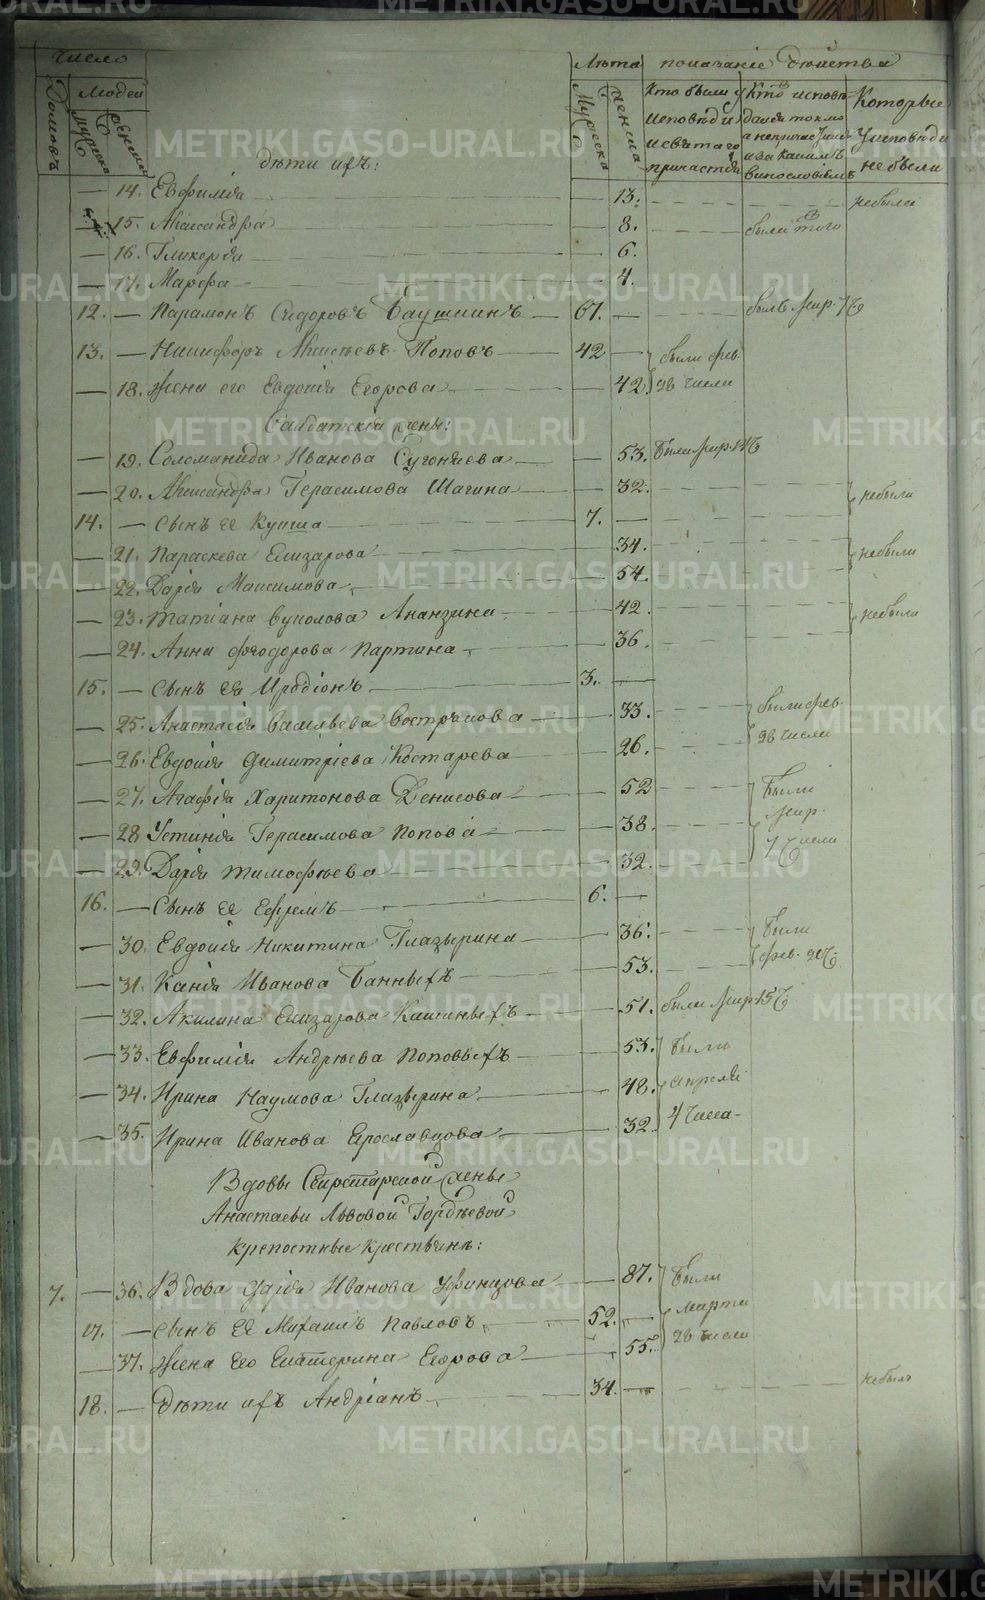 число
Домовъ
Людей
Мужска
Женска
Лѣта
Мужеска
Женска
показаніе дѣйства
Кто были у исповѣди и святаго причастія
Кто исповѣдался токмо а непричастился и за какимъ винословіемъ
Которые у исповѣди не были
дѣти ихъ:
14. Евфимія 13. небыла
15. Александра 8. была
16. Гликерія 6.
17. Марфа 4.
12. Парамонъ Сидоровъ 61. былъ Мар. 7
13. Никифоръ Алексѣевъ Поповъ 42
были фев.
18. жена его Евдокія Егорова 42
28 числа
Салдатскія жены:
19. Соломанида Иванова 53. была Мар. 14
20. Александра Герасимова Шагина 32. небыли
14. сынъ ее Кузма 7.
21. Параскева Елизарова 34. небыли
22. Дарія Максимова 54.
23. Татіана Вуколова Ананзина 42. небыли
24. Анна Феодорова Партина 36.
15. сынъ ея Иродіонъ 3.
25. Анастасія Васильева Вострикова 33. были фев.
26. Евдокія Димитріева Костарева 26.
28 числа
27. Агафія Харитонова Денисова 52 были
28 Устинія Герасимова Попова 38. Мар.
29. Дарія Тимофѣева 32. 7 числа
16. сынъ ее Ефремъ 6.
30. Евдокія Никитина Глазырина 36. были
31. Иванова Банныхъ 53. фев.
32. Акилина Елизарова Кашиныхъ 51. была Мар. 15
33. Евфимія Андрѣева Поповыхъ 53. были
34. Ирина Наумова Глазырина 48. апреля
35. Ирина Иванова Ярославцова 32. 4 числа
Вдовы Секретарской жены
Анастасьи Львовой Гордѣевой
крепостные крестьянъ:
7. 36. Вдова Дарія Иванова Уфинцова 87. были
17. сынъ ея Михаилъ Павловъ 52. марта
37. жена его Екатерина Егорова 55. 28 числа
18. Дѣти ихъ Андріанъ 34. небылъ
METRIKI.GASO-URAL.RU